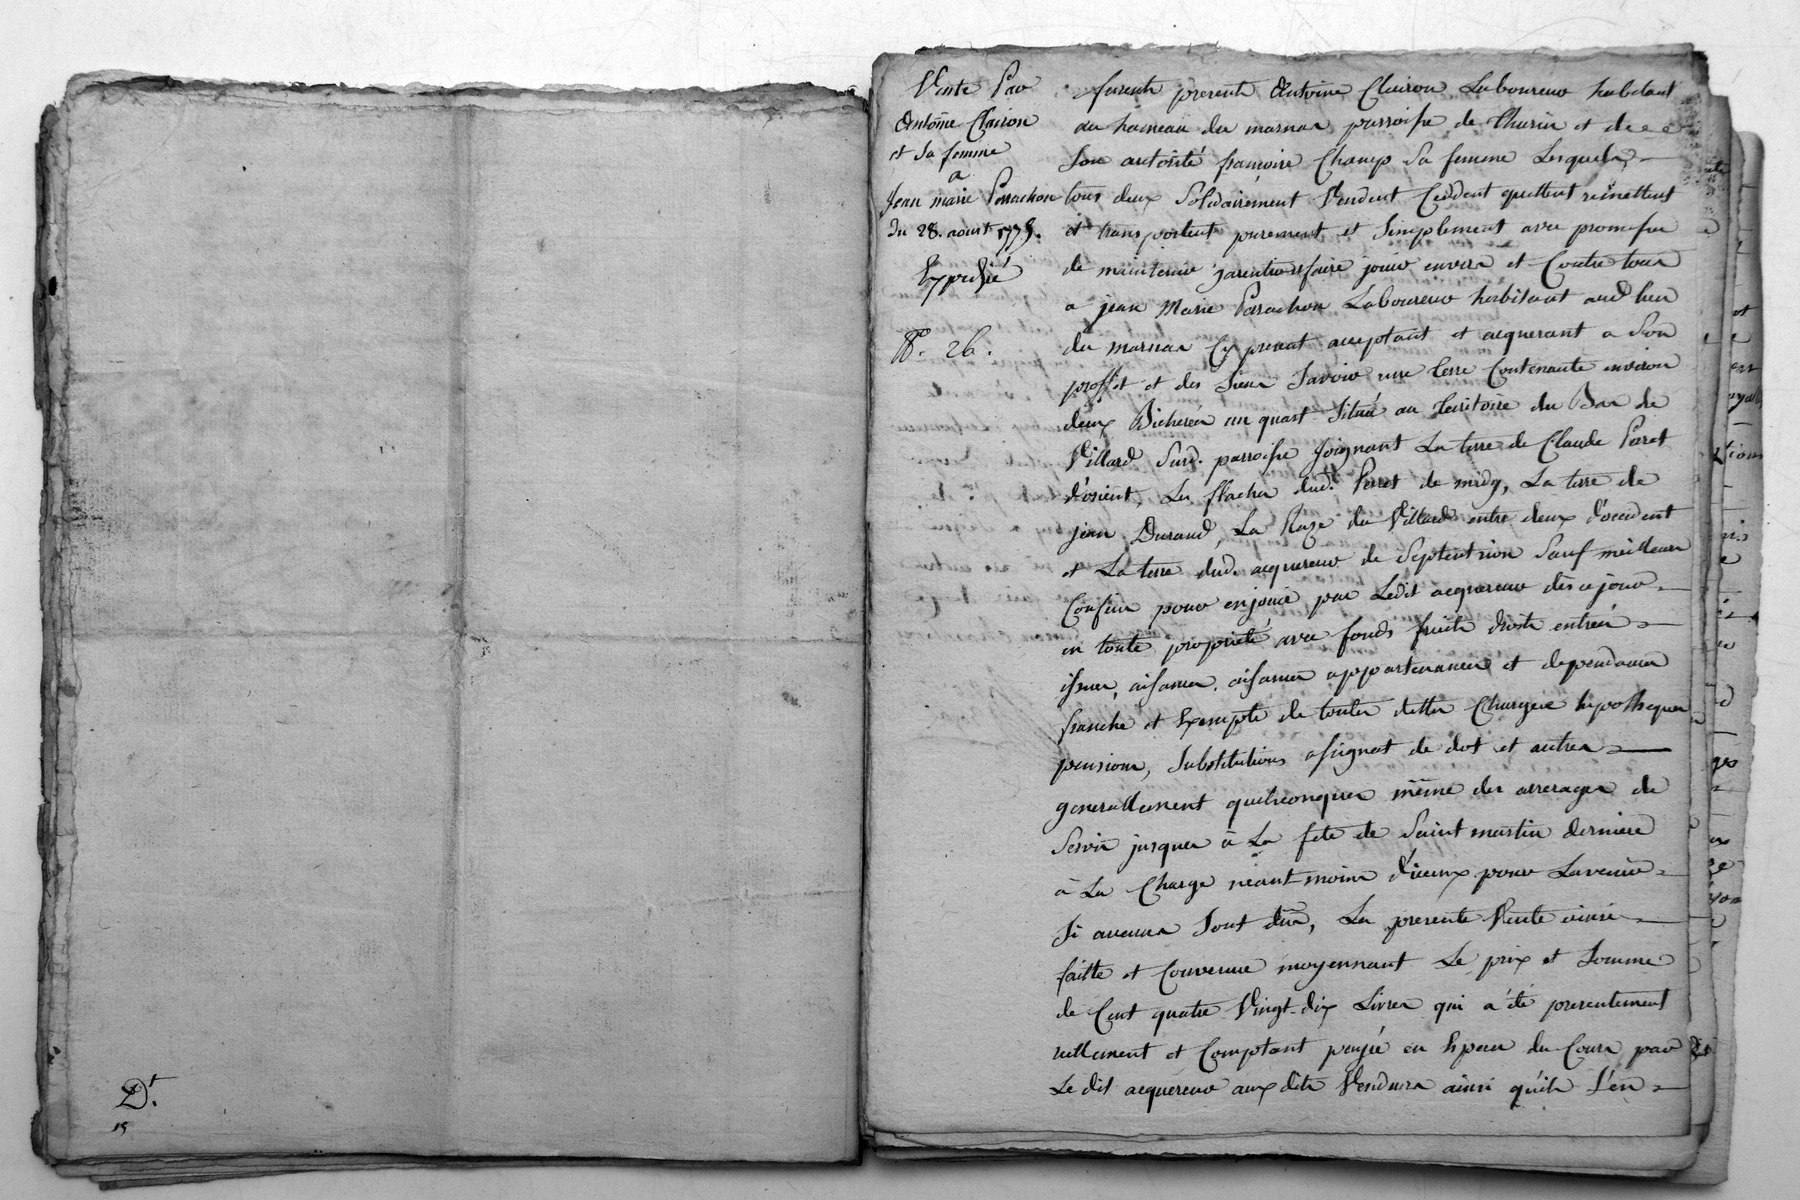 D.t
15
Vente Par
Antoine Clairon
et Sa femme
a
Jean marie Perrachon
du 28. aoust 1775.
Expedié
N. 26.
furent presents Antoine Clairon Laboureur habitant
au hameau du marnas parroisse de Thurins et de
Son autorité francoise Champ Sa femme Lesquels
tous deux Solidairement Vendent Ceddent quittent remettent
et transportent purement et Simplement avec promesse
de maintenir garentir et faire jouir envers et Contre tous
a jean Marie Parachon Laboureur habitant aud lieu
du marnas Cy present acceptant et acquerant a Son
proffit et des Siens Savoir une terre Contenante environ
deux Bicherées un quart Située au territoire du Bas de
Villard Surd. parroisse Joignant La terre de Claude Perret
d'orient, Les flaches dud. Perret de midy, La terre de
jean Durand, La Raze du Villard entre deux d'occident
et La terre dud. acquereur de Septentrion Sauf meilleurs
Confins pour en jouir par Ledit acquereur dès ce jour
en toute propriété avec fonds fruits droits entrées
issues, aisances appartenances et dependances
franche et Exempte de toutes dettes Charges hypotheques
pensions, Substitutions assignat de dot et autres
generallement quelconques même des arrerages de
Servis jusques à La fete de Saint martin derniere
à La Charge neant-moins d'iceux pour Lavenir
Si aucuns Sont dûs, La presente Vente ainsi
faitte et Convenue moyennant Le prix et Somme
de Cent quatre-Vingt-dix Livres qui a été presentement
reellement et Comptant payée en Especes du Cours par
Le dit acquéreur aux dits Vendeurs ainsi qu'ils L'en